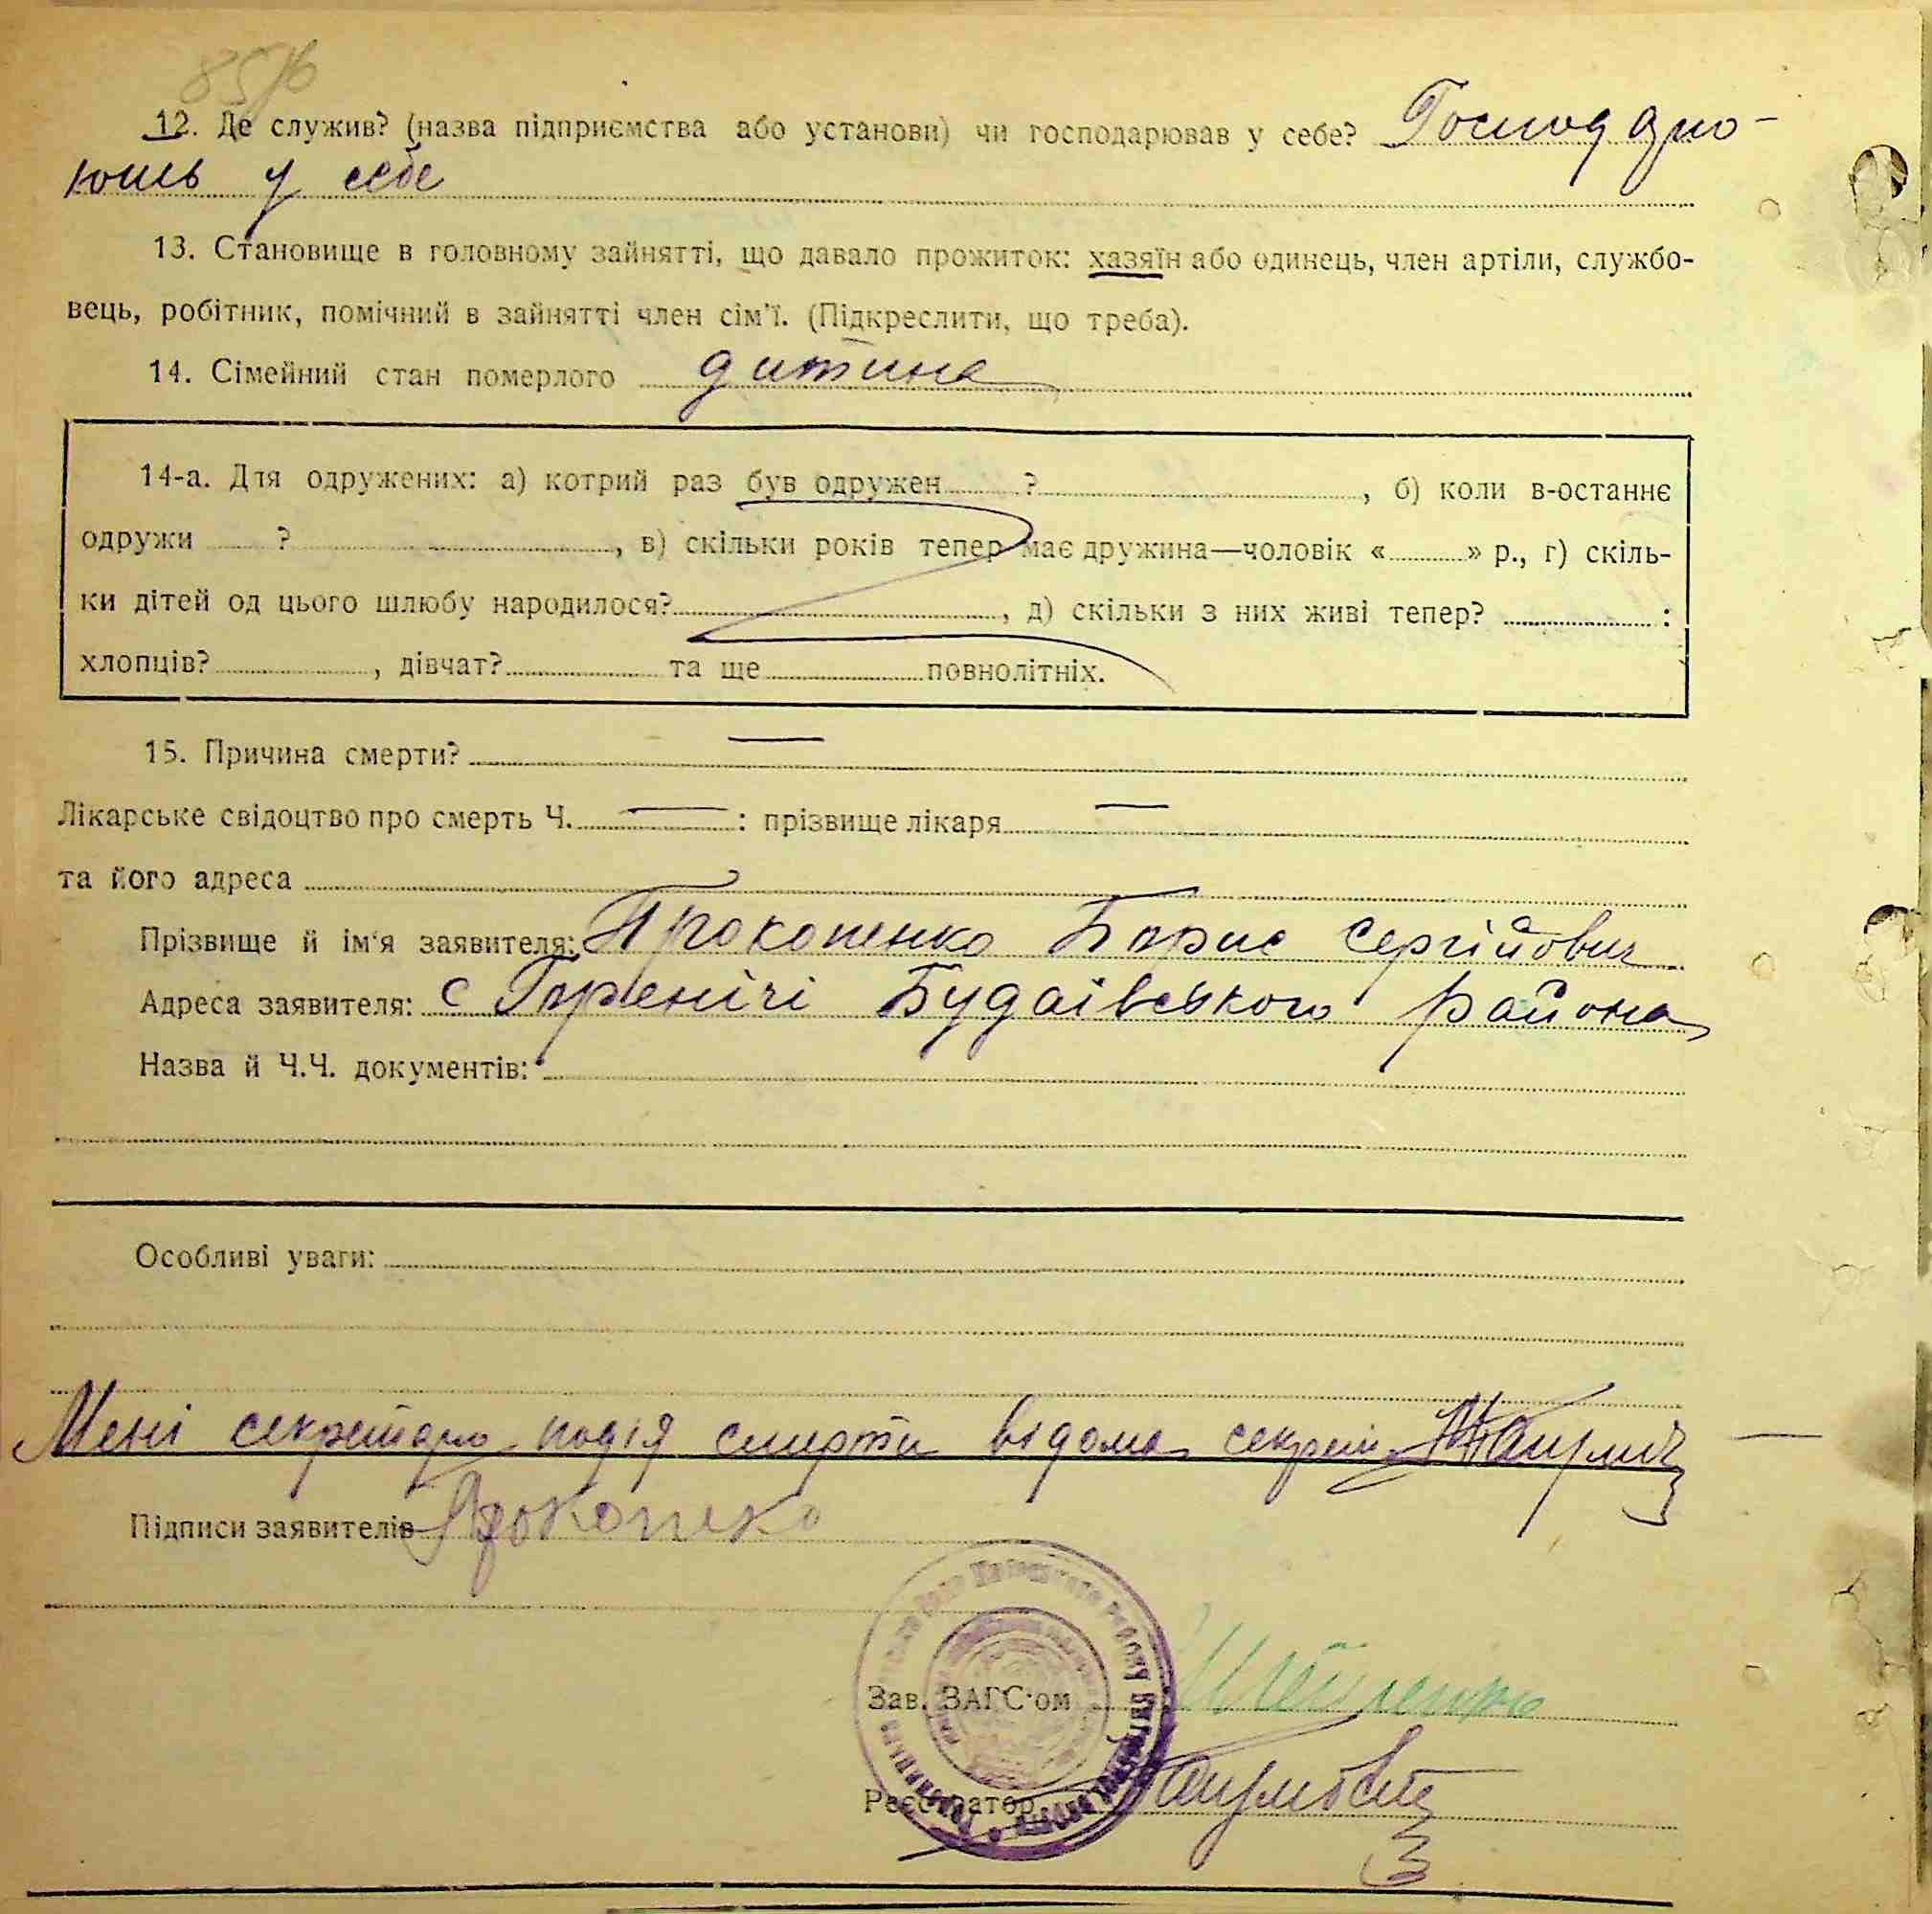 85/б
12. Де служив? (назва підприємства або установи) чи господарював у себе?
у себе
13. Становище в головному зайнятті, що давало прожиток: хазяїн або одинець, член артіли, службо-
вець, робітник, помічний в зайнятті член сім'ї. (Підкреслити, що треба).
14. Сімейний стан померлого дитина
14-а. Для одружених: а) котрий раз був одружен ? , б) коли в-останнє
одружи ? , в) скільки років тепер має дружина—чоловік « » р., г) скіль-
ки дітей од цього шлюбу народилося? , д) скільки з них живі тепер? :
хлопців? , дівчат? та ще повнолітніх.
15. Причина смерти? —
Лікарське свідоцтво про смерть Ч. — : прізвище лікаря —
та його адреса
Прізвище й ім'я заявителя: Прокопенко Борис Сергійович
Адреса заявителя: с Горенічі Будаівського района
Назва й Ч.Ч. документів:
Особливі уваги:
Мені секретарю подія смерти відома секрет.
Підписи заявителів
Зав. ЗАГС'ом
Реєстратор